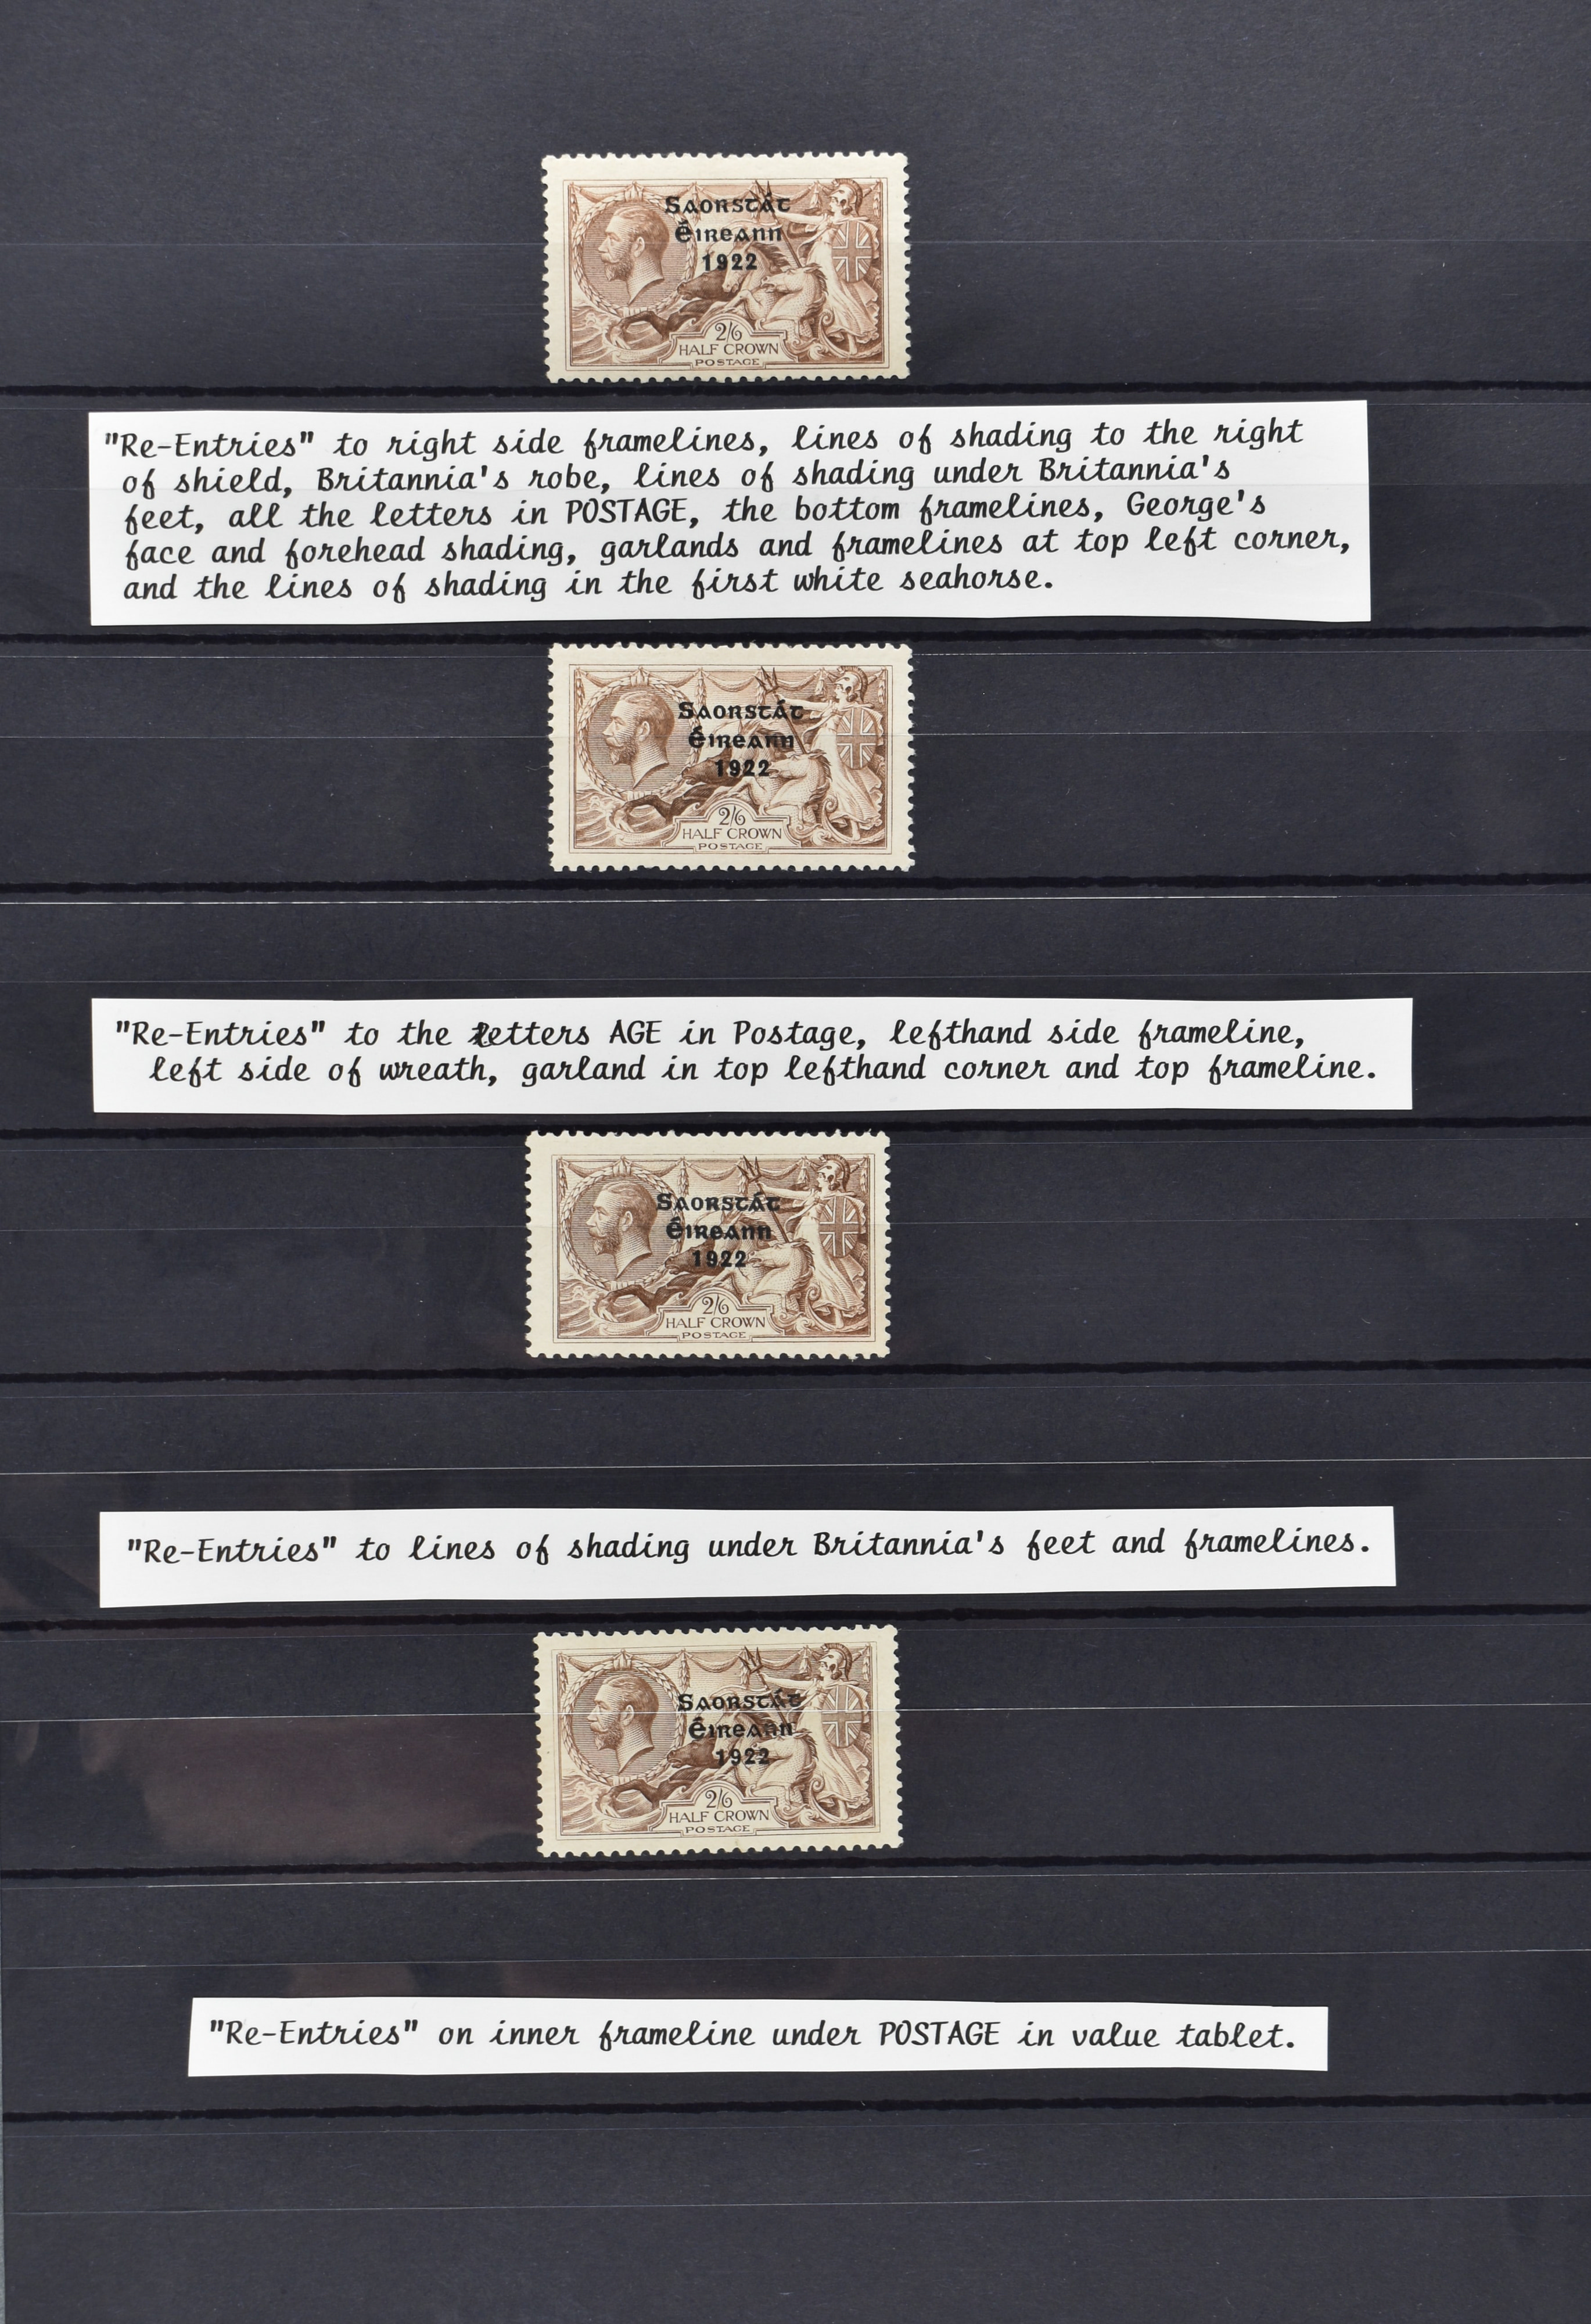 Saorstát
Éireann
1922
2/6
HALF CROWN
POSTAGE
"Re-Entries" to right side framelines, lines of shading to the right
of shield, Britannia's robe, lines of shading under Britannia's
feet, all the letters in POSTAGE, the bottom framelines, George's
face and forehead shading, garlands and framelines at top left corner,
and the lines of shading in the first white seahorse.
Saorstát
Éireann
1922
2/6
HALF CROWN
POSTAGE
"Re-Entries" to the letters AGE in Postage, lefthand side frameline,
left side of wreath, garland in top lefthand corner and top frameline.
Saorstát
Éireann
1922
2/6
HALF CROWN
POSTAGE
"Re-Entries" to lines of shading under Britannia's feet and framelines.
Saorstát
Éireann
1922
2/6
HALF CROWN
POSTAGE
"Re-Entries" on inner frameline under POSTAGE in value tablet.